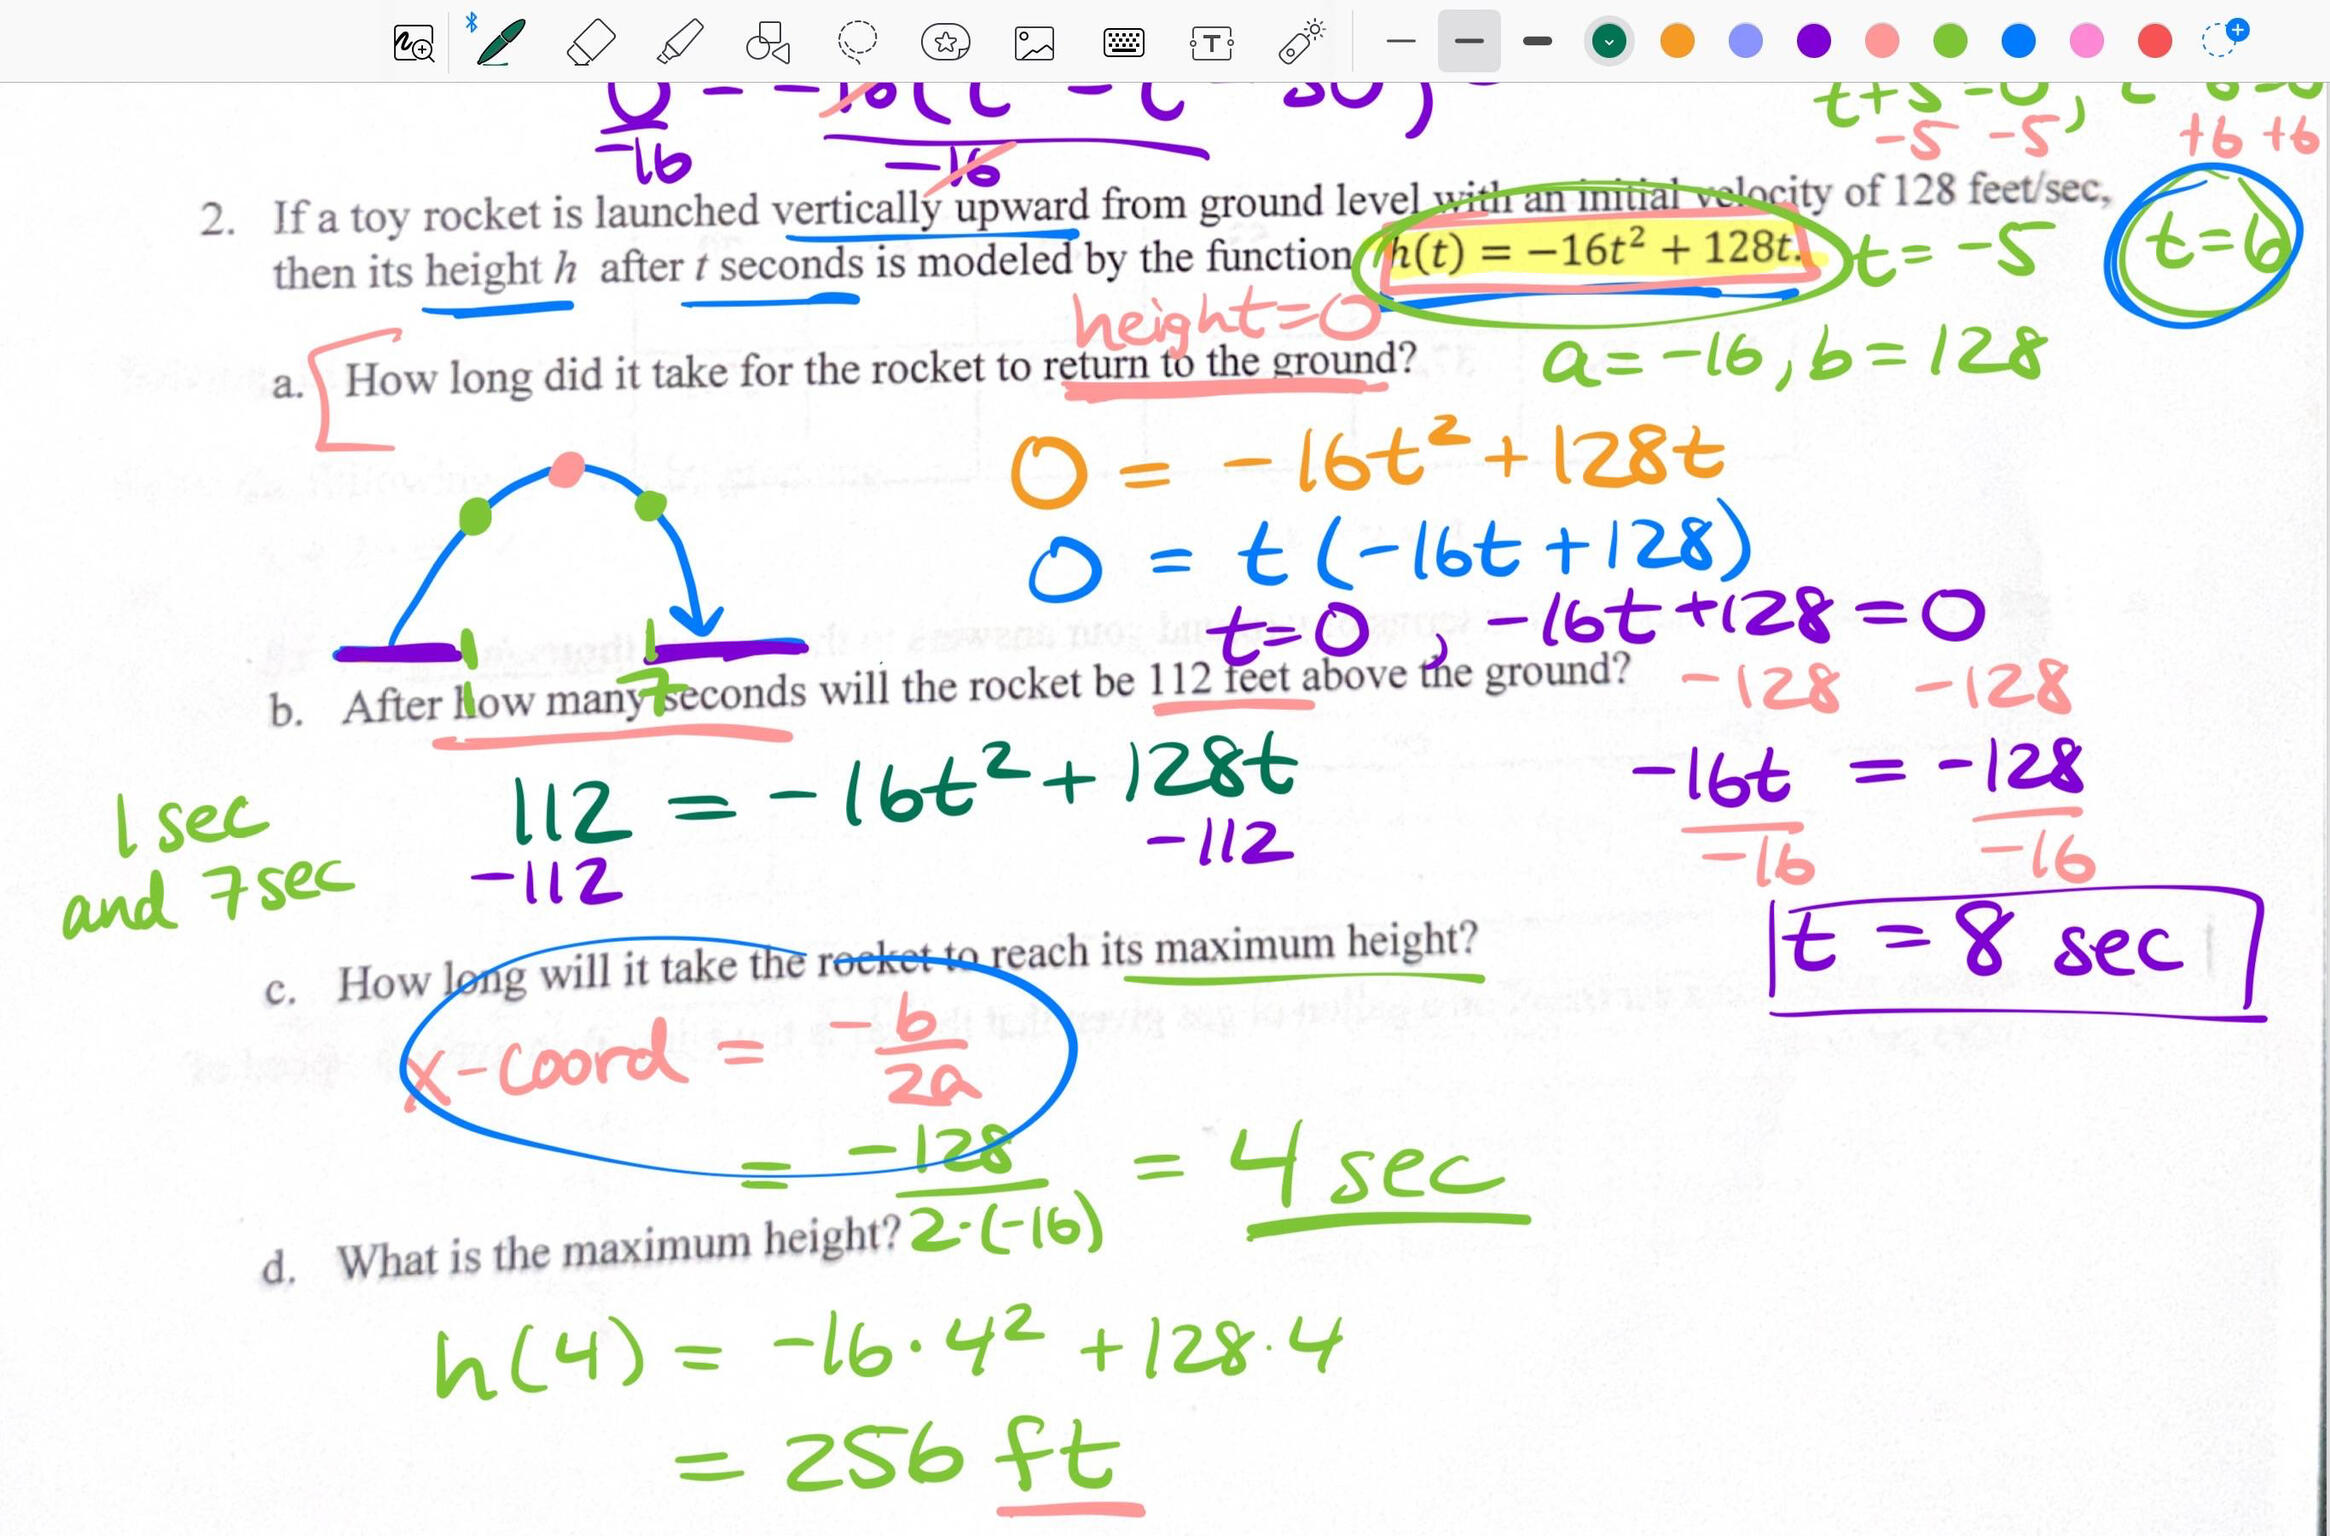 -16
-16
t+5=0,
-5 -5
+6 +6
2. If a toy rocket is launched vertically upward from ground level with an initial velocity of 128 feet/sec,
then its height h after t seconds is modeled by the function h(t) = −16t² + 128t.
t = -5
t=6
height=0
a=-16, b=128
a. How long did it take for the rocket to return to the ground?
0 = -16t² + 128t
0 = t(-16t+128)
t=0, -16t+128=0
-128 -128
1 7
b. After how many seconds will the rocket be 112 feet above the ground?
112 = -16t² + 128t
-112 -112
-16t = -128
-16 -16
t = 8 sec
1 sec
and 7 sec
c. How long will it take the rocket to reach its maximum height?
x-coord = -b
2a
= -128 = 4 sec
2·(-16)
d. What is the maximum height?
h(4) = -16·4² + 128·4
= 256 ft